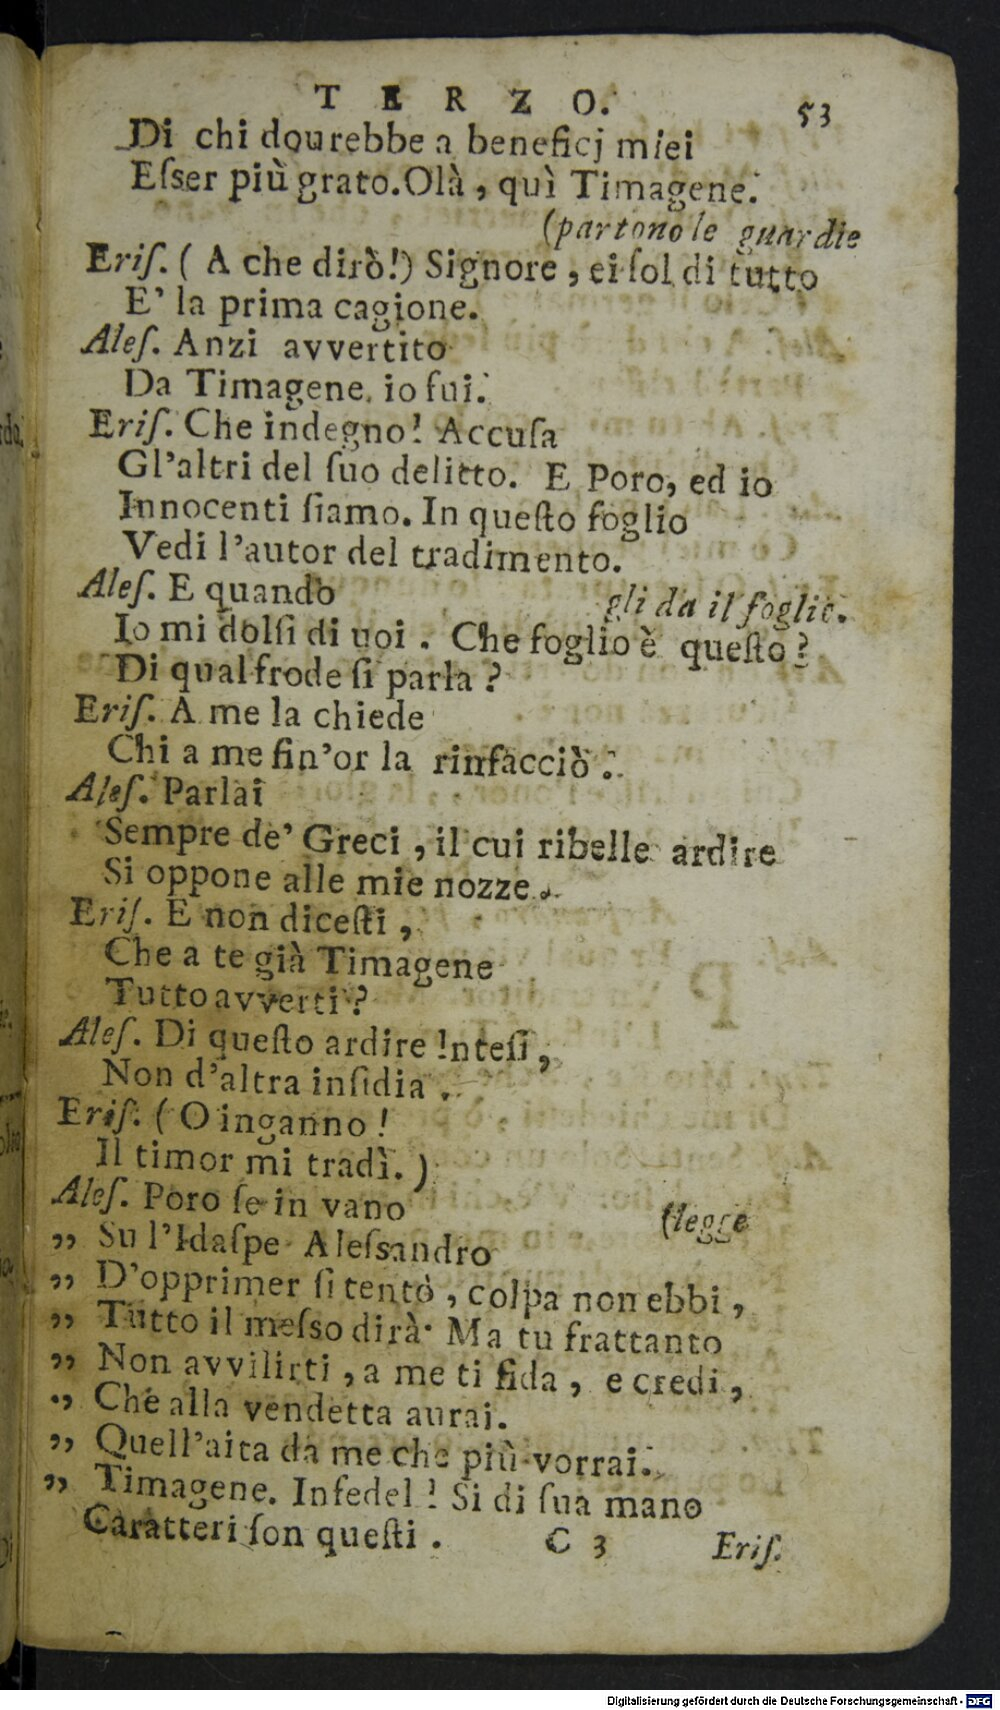 TERZO. 53
Di chi dourebbe a beneficj miei
Eſser più grato. Olà, quì Timagene.
(partono le guardie
Eriſ. ( A che dirò!) Signore, ei ſol di tutto
E' la prima cagione.
Aleſ. Anzi avvertito
Da Timagene io fui.
Eriſ. Che indegno! Accuſa
Gl'altri del ſuo delitto. E Poro, ed io
Innocenti ſiamo. In queſto foglio
Vedi l'autor del tradimento.
Aleſ. E quando
gli da il foglio.
Io mi dolſi di uoi. Che foglio è queſto?
Di qual frode ſi parla?
Eriſ. A me la chiede
Chi a me fin'or la rinfacciò.
Aleſ. Parlai
Sempre de' Greci, il cui ribelle ardire
Si oppone alle mie nozze.
Eriſ. E non diceſti,
Che a te già Timagene
Tutto avverti?
Aleſ. Di queſto ardire Inteſi,
Non d'altra inſidia.
Eriſ. ( O inganno!
Il timor mi tradì. )
Aleſ. Poro ſe in vano
(legge
„ Su l'Idaſpe Aleſsandro
„ D'opprimer ſi tentò, colpa non ebbi,
„ Tutto il meſso dirà. Ma tu frattanto
„ Non avvilirti, a me ti fida, e credi,
„ Che alla vendetta aurai.
„ Quell'aita da me che più vorrai.
„ Timagene. Infedel! Si di ſua mano
Caratteri ſon queſti.
C 3 Eriſ.
Digitalisierung gefördert durch die Deutsche Forschungsgemeinschaft - DFG